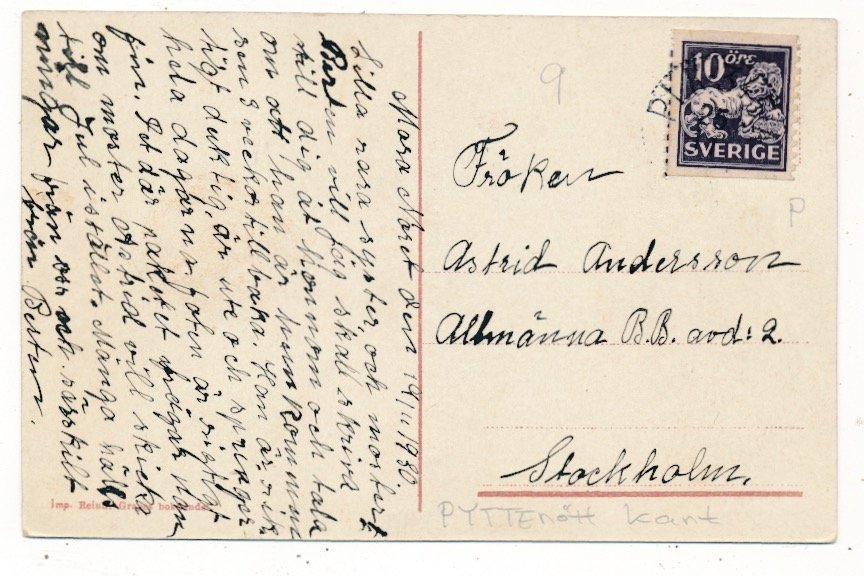 Mora Noret den 19/11 1930.
Lilla rara syster, och moster!
Bisten vill jag skall skriva
till dig åt honnom och tala
om att han är hemkommen
sen 3 veckor tillbaka. Han är rik-
tigt duktig, är ute och springer
hela dagarna foten är riktigt
fin. Det där paketet frågar han
om moster Astrid vill skicka
till Jul istället. Många häls
ningar från oss och särskilt
från Bisten.
10 ÖRE
SVERIGE
25
9
P
Fröken
Astrid Andersson
Allmänna B.B. avd: 2.
Stockholm.
PYTTENÖTT kant
Imp.